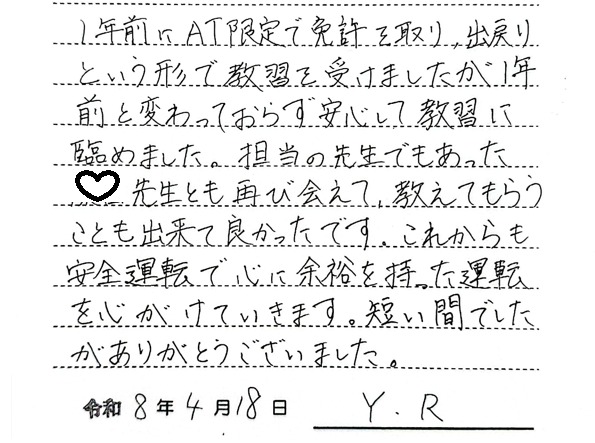 1年前にAT限定で免許を取り、出戻り
という形で教習を受けましたが1年
前と変わっておらず安心して教習に
臨めました。担当の先生でもあった
♡先生とも再び会えて、教えてもらう
ことも出来て良かったです。これからも
安全運転で心に余裕を持った運転
を心がけていきます。短い間でした
がありがとうございました。
令和8年4月18日 Y.R